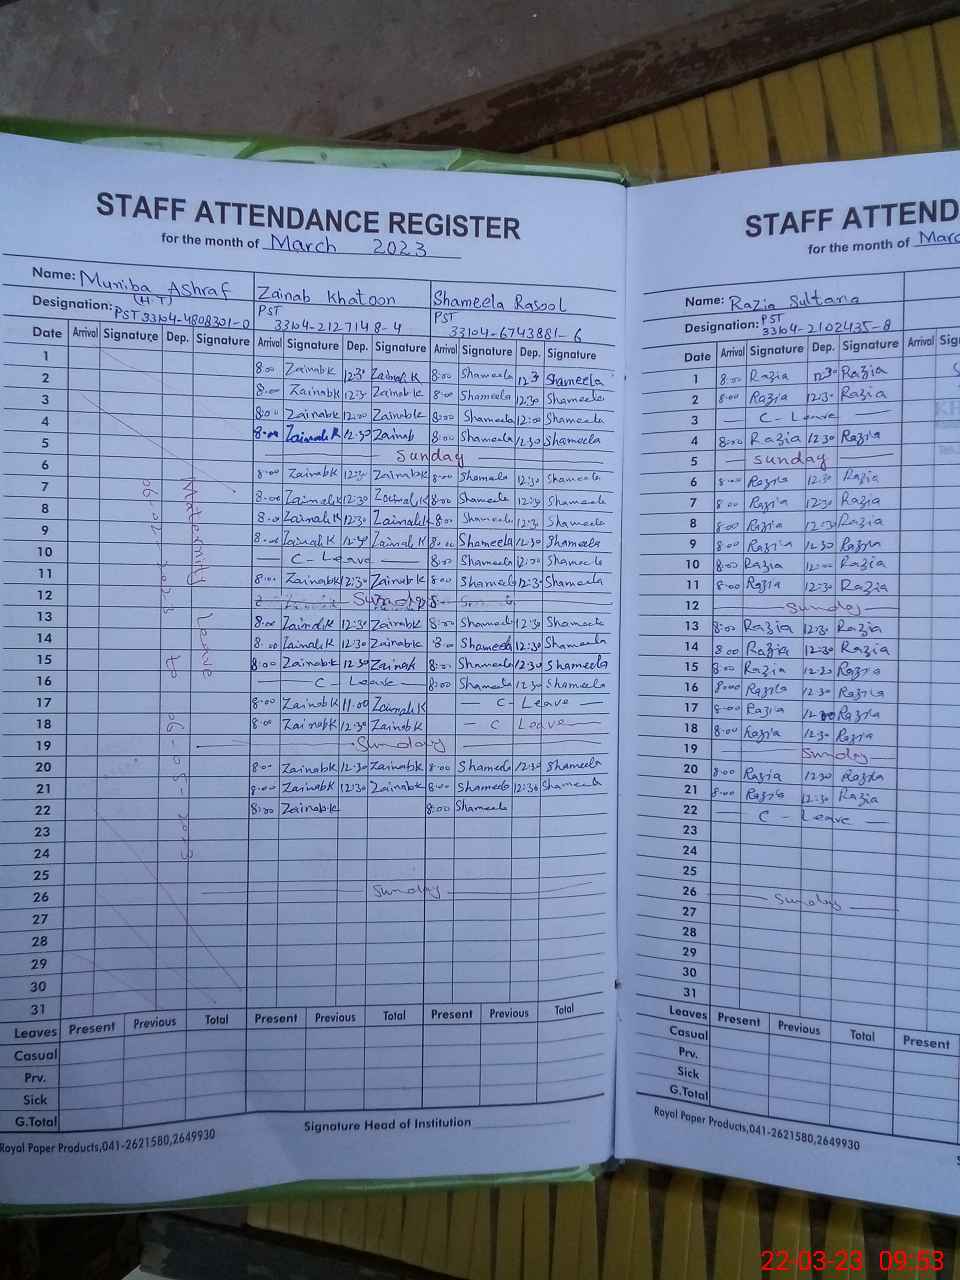 STAFF ATTENDANCE REGISTER
for the month of March 2023
Name: Muniba Ashraf Zainab Khatoon Shameela Rasool
(H.T)
Designation: PST 33104-4808301-0 PST 33104-2127148-4 PST 33104-6743881-6
Date Arrival Signature Dep. Signature Arrival Signature Dep. Signature Arrival Signature Dep. Signature
1 8:00 Zainabk 12:30 Zainabk 8:00 Shameela 12:3 Shameela
2 8:00 Zainabk 12:30 Zainabk 8:00 Shameela 12:30 Shameela
3 8:00 Zainabk 12:00 Zainabk 8:00 Shameela 12:00 Shameela
4 8:00 Zainabk 12:30 Zainab 8:00 Shameela 12:30 Shameela
5 Sunday
6 8:00 Zainabk 12:30 Zainabk 8:00 Shameela 12:30 Shameela
7 8:00 Zainabk 12:30 Zainabk 8:00 Shameela 12:30 Shameela
8 8:00 Zainabk 12:30 Zainabk 8:00 Shameela 12:30 Shameela
9 8:00 Zainabk Zainabk 8:00 Shameela 12:30 Shameela
10 C - Leave 8:00 Shameela 12:00 Shameela
11 8:00 Zainabk 12:30 Zainabk 8:00 Shameela 12:30 Shameela
12 Sunday
13 8:00 Zainabk 12:30 Zainabk 8:00 Shameela 12:30 Shameela
14 8:00 Zainabk 12:30 Zainabk 8:00 Shameela 12:30 Shameela
15 8:00 Zainabk 12:30 Zainab 8:00 Shameela 12:30 Shameela
16 C - Leave 8:00 Shameela 12:30 Shameela
17 8:00 Zainabk 11:00 Zainabk C - Leave
18 8:00 Zainabk 12:30 Zainabk C Leave
19 Sunday
20 8:00 Zainabk 12:30 Zainabk 8:00 Shameela 12:30 Shameela
21 8:00 Zainabk 12:30 Zainabk 8:00 Shameela 12:30 Shameela
22 8:00 Zainabk 8:00 Shameela
23
24
25
26 Sunday
27
28
29
30
31
Maternity Leave
06-02-2023 to 06-05-2023
Leaves Present Previous Total Present Previous Total Present Previous Total
Casual
Prv.
Sick
G.Total
Signature Head of Institution
Royal Paper Products,041-2621580,2649930
STAFF ATTEND
for the month of Marc
Name: Razia Sultana
Designation: PST 33104-2102435-8
Date Arrival Signature Dep. Signature Arrival Sign
1 8:00 Razia 12:30 Razia
2 8:00 Razia 12:30 Razia
3 C - Leave
4 8:00 Razia 12:30 Razia
5 Sunday
6 8:00 Razia 12:30 Razia
7 8:00 Razia 12:30 Razia
8 8:00 Razia 12:30 Razia
9 8:00 Razia 12:30 Razia
10 8:00 Razia 12:00 Razia
11 8:00 Razia 12:30 Razia
12 Sunday
13 8:00 Razia 12:30 Razia
14 8:00 Razia 12:30 Razia
15 8:00 Razia 12:30 Razia
16 8:00 Razia 12:30 Razia
17 8:00 Razia Razia
18 8:00 Razia 12:30 Razia
19 Sunday
20 8:00 Razia 12:30 Razia
21 8:00 Razia 12:30 Razia
22 C - Leave
23
24
25
26 Sunday
27
28
29
30
31
Leaves Present Previous Total Present
Casual
Prv.
Sick
G.Total
Royal Paper Products,041-2621580,2649930
22-03-23 09:53